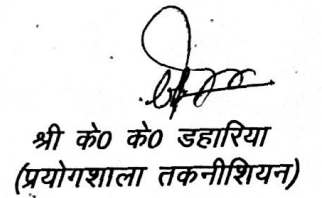 श्री के0 के0 डहारिया
(प्रयोगशाला तकनीशियन)